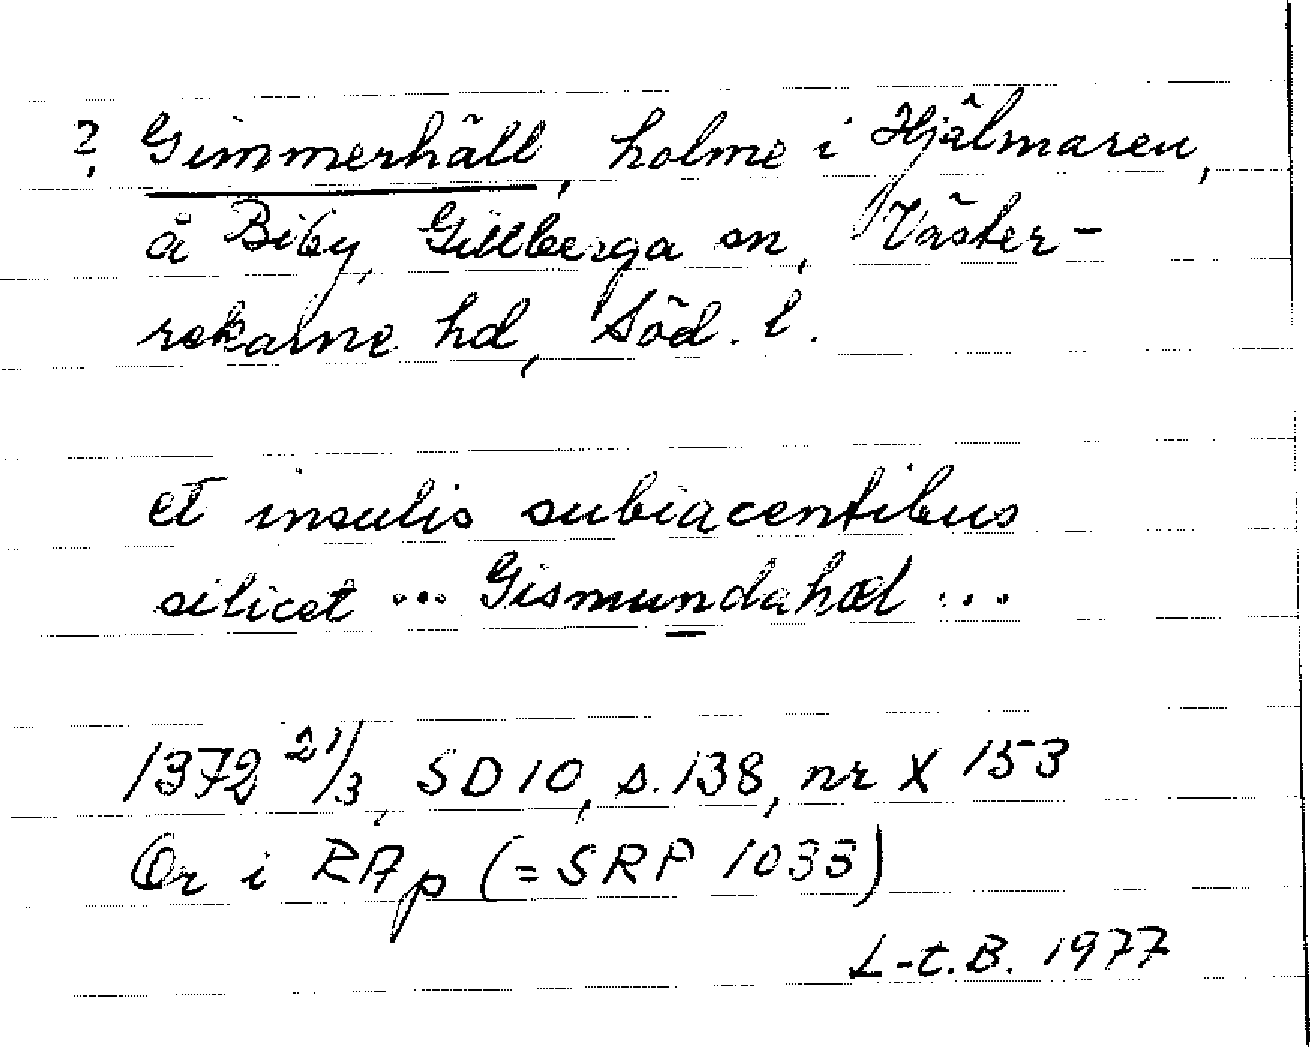 ? Gimmerhäll, holme i Hjälmaren,
å Biby, Gillberga sn, Väster-
rekarne hd, Söd. l.
et insulis subiacentibus
silicet ... Gismundahæl ...
1372 21/3, SD 10, s. 138, nr X 153
Or i RAp (= SRP 1033)
L-t. B. 1977